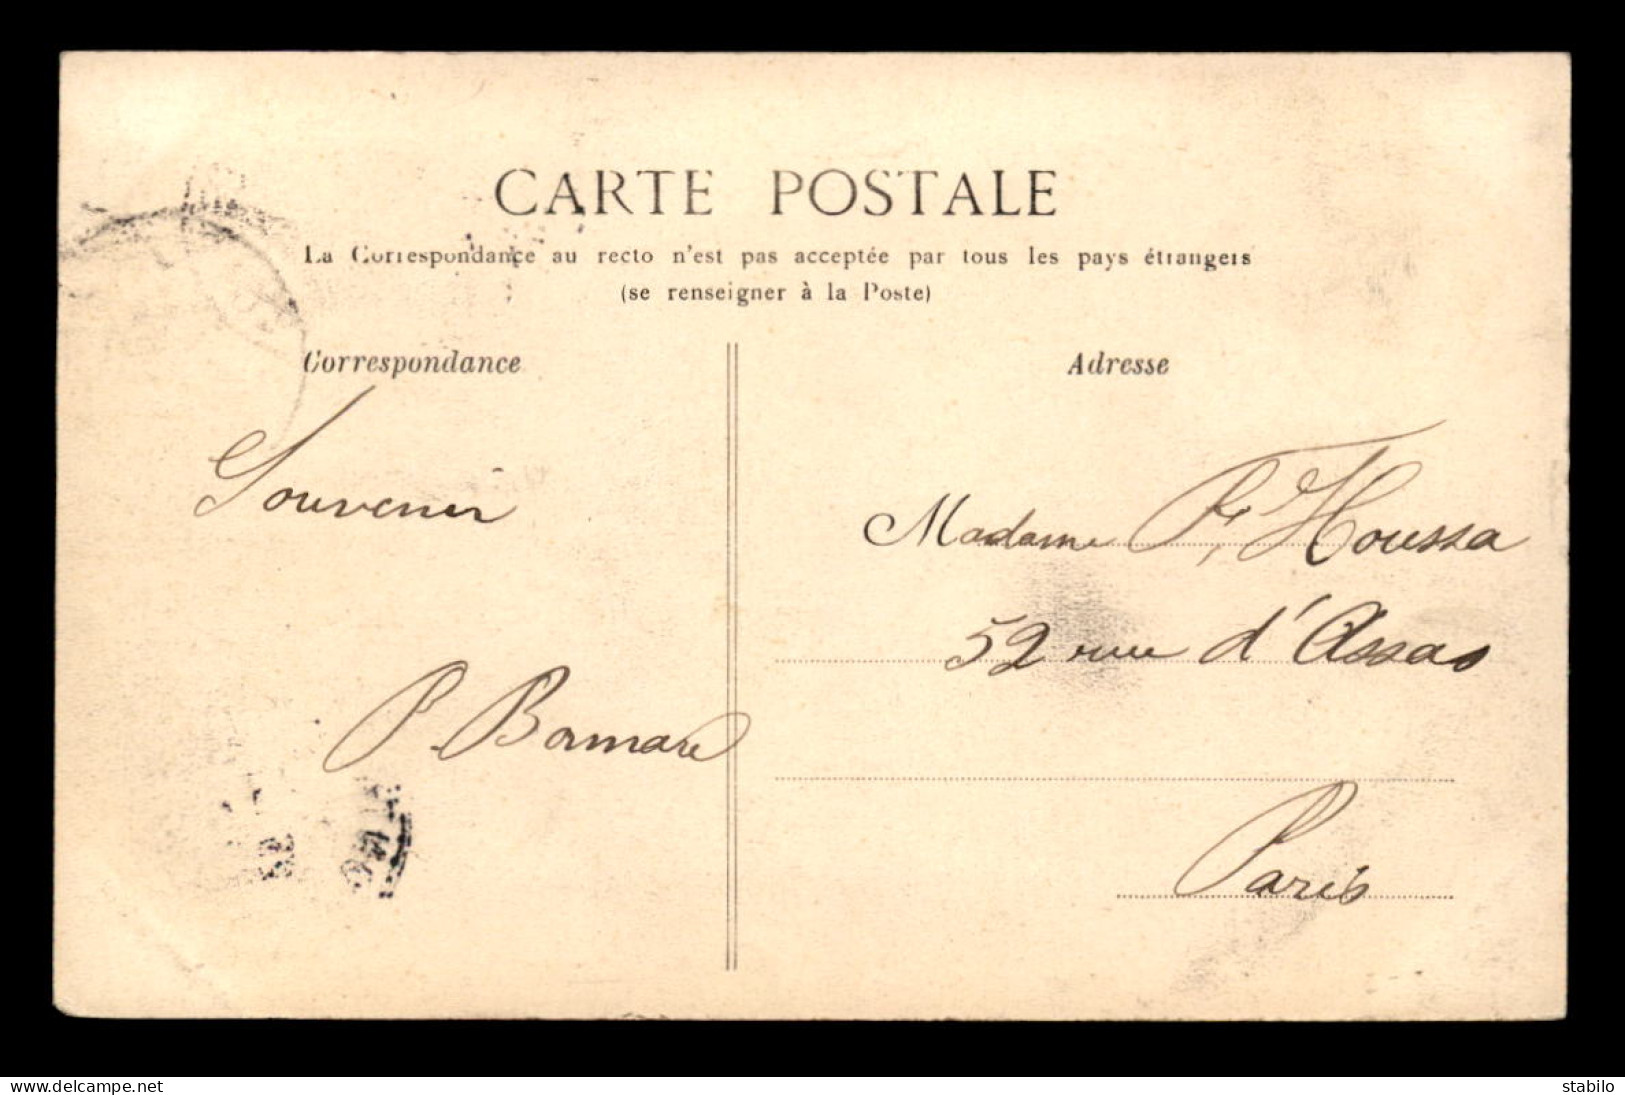 CARTE POSTALE
La Correspondance au recto n'est pas acceptée par tous les pays étrangers
(se renseigner à la Poste)
Correspondance
Adresse
Souvenir
P. Bonmare
Madame F. Houssa
52 rue d'Assas
Paris
www.delcampe.net
stabilo